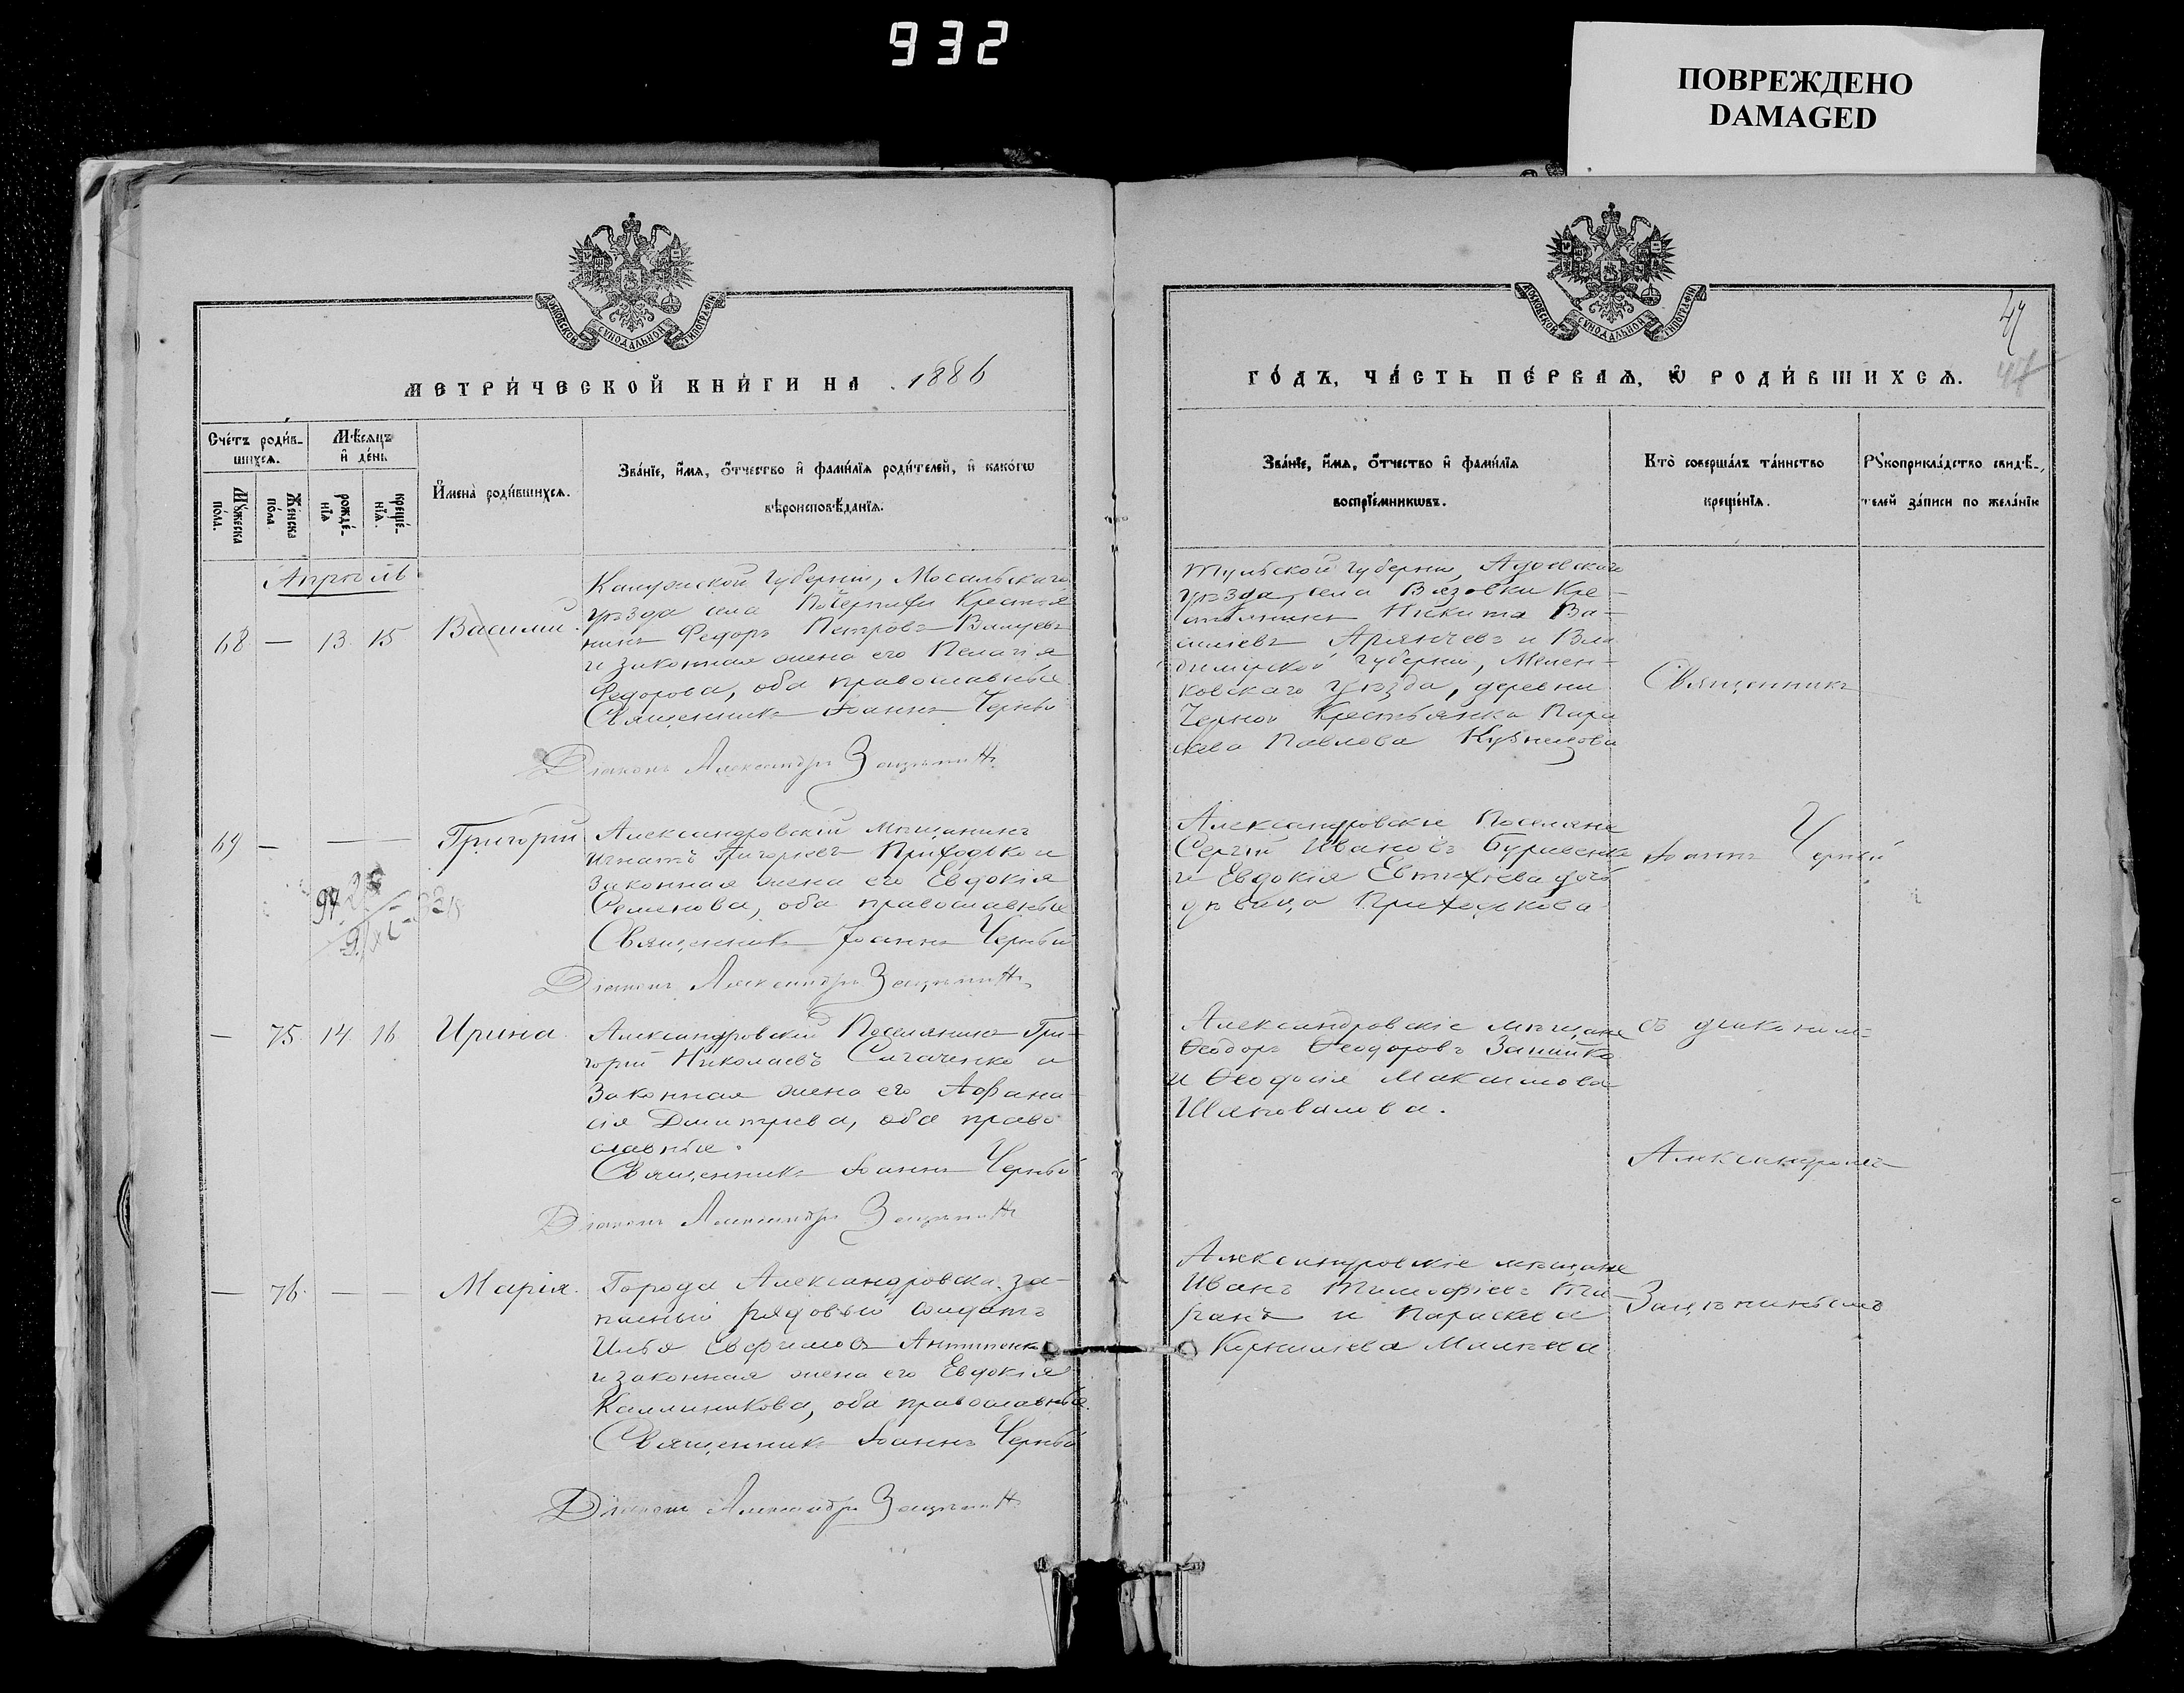 932
ПОВРЕЖДЕНО
DAMAGED
МОСКОВСКОЙ СУНОДАЛЬНОЙ ТИПОГРАФІИ
МЕТРИ́ЧЕСКОЙ КНИ́ГИ НА 1886
Сче́тъ роди́в-
шихсѧ.
Мѣ́сѧцъ
и҆ де́нь
Мꙋ́жеска
по́ла.
Же́нска
по́ла.
рожде́-
нїѧ
креще́-
нїѧ.
И҆мена̀ роди́вшихсѧ.
Зва́нїе, и҆́мѧ, ѻ҆́тчество и҆ фами́лїѧ роди́телей, и҆ како́гѡ
вѣроисповѣ́данїѧ.
Апрѣль
68 — 13. 15 Василій.
Калужской губерніи, Мосальскаго
уѣзда села Крестья
нинъ Федоръ Петровъ
и законная жена его Пелагія
Федорова, оба православные
Священникъ Іоаннъ Черный
Діаконъ Александръ
69 — — — Григорій
Александровскій мѣщанинъ
Игнатъ Григорьевъ Приходько и
законная жена его Евдокія
Семенова, оба православные
Священникъ Іоаннъ Черный
Діаконъ Александръ
— 75. 14. 16 Ирина.
Александровскій Поселянинъ Гри-
горій Николаевъ Сигаченко и
законная жена его Афана-
сія Дмитріева, оба право-
славные.
Священникъ Іоаннъ Черный
Діаконъ Александръ
— 76. — — Марія.
Города Александровска, за-
пасный рядовый солдатъ
Илья Ефимовъ Антипенко
и законная жена его Евдокія
Каллиникова, оба православные.
Священникъ Іоаннъ Черный
Діаконъ Александръ
МОСКОВСКОЙ СУНОДАЛЬНОЙ ТИПОГРАФІИ
47
ГО́ДЪ, ЧА́СТЬ ПЕ́РВАѦ, Ѡ҆ РОДИ́ВШИХСѦ.
Зва́нїе, и҆́мѧ, ѻ҆́тчество и҆ фами́лїѧ
воспрїе́мникѡвъ.
Кто̀ соверша́лъ та́инство
креще́нїѧ.
Рꙋкоприкла́дство свидѣ́-
телей за́писи по жела́нїю
Тульской губерніи,
уѣзда, села Вязовки Кре-
стьянинъ Никита Ва-
сильевъ и Вла
димірской губерніи, Мелен-
ковскаго уѣзда, деревни
Черной Крестьянка Пара
Павлова Кузнецова
Александровскіе Поселяне
Сергій Ивановъ
и Евдокія Евтихіева дочь
дѣвица Приходькова
Александровскіе мѣщане
Ѳеодоръ Ѳеодоровъ
и Ѳеодосія Максимова
Шаповалова.
Александровскіе мѣщане
Иванъ Тимофѣевъ Та-
ранъ и Параскева
Корнилієва
Священникъ
Іоаннъ Черный
съ діакономъ
Александромъ